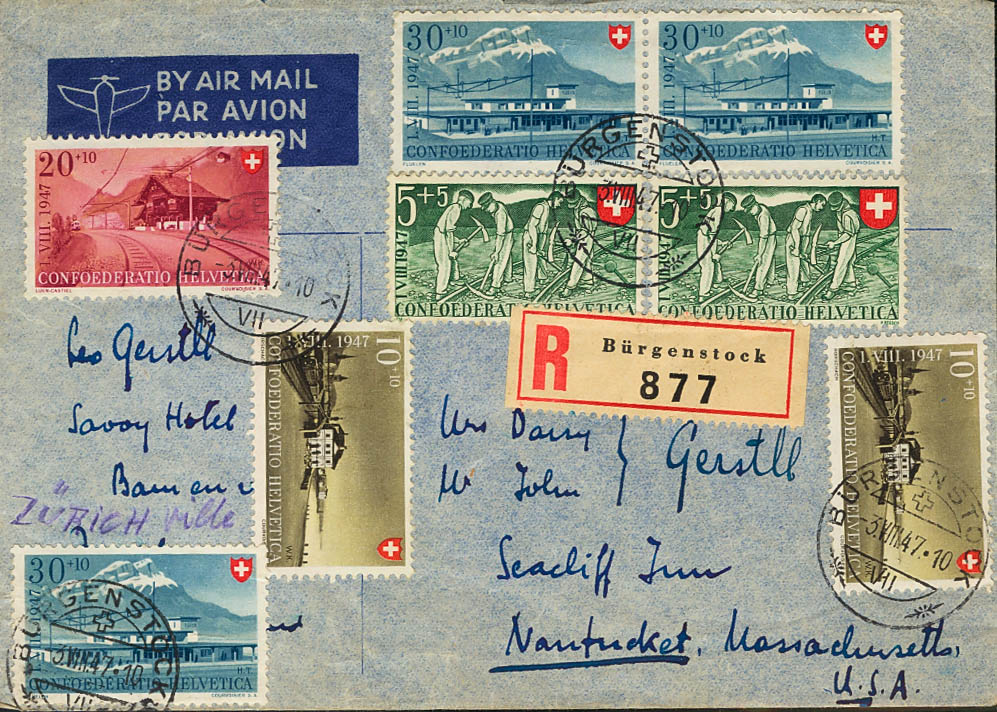 BY AIR MAIL
PAR AVION
30+10
1.VIII.1947
CONFOEDERATIO HELVETICA
FLUELEN
H.T.
COURVOISIER S.A.
30+10
1.VIII.1947
CONFOEDERATIO HELVETICA
H.T.
COURVOISIER S.A.
20+10
1.VIII.1947
CONFOEDERATIO HELVETICA
COURVOISIER S.A.
5+5
1.VIII.1947
CONFOEDERATIO HELVETICA
5+5
CONFOEDERATIO HELVETICA
BÜRGENSTOCK
-3.VIII.47.
VII
BÜRGENSTOCK
-3.VIII.47.10
VII
R
Bürgenstock
877
Leo Gerstll
Savoy Hotel
ZÜRICH ville
10+10
1.VIII.1947
CONFOEDERATIO HELVETICA
W.K.
10+10
1.VIII.1947
CONFOEDERATIO HELVETICA
RORSCHACH
BÜRGENSTOCK
-3.VIII.47.10
VII
Mrs Daisy
Mr John
Gerstll
Seacliff Inn
Nantucket, Massachusetts,
U.S.A.
30+10
1947
CONFOEDERATIO HELVETICA
H.T.
COURVOISIER S.A.
BÜRGENSTOCK
-3.VIII.47.10
VII